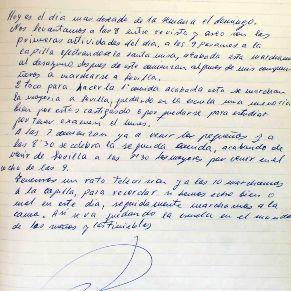 Hoy es el día mas deseado de la semana el domingo.
Nos levantamos a las 8 entre revista y aseo son las
primeras actividades del día, a las 9 pasamos a la
capilla celebrandose la santa misa, acabada esta marchamos
al desayuno despues de este comienzan algunos de mis compa
ñeros a marcharse a Sevilla.
toca para hacer la 1ª comida acabada esta se marchan
la mayoria a Sevilla, quedando en la escuela una minoria
bien por estar castigado o por quedarse para estudiar
por tener examen el lunes.
A las 7 comienzan ya a venir los pequeños y a
las 8'30 se celebra la segunda comida, acabando de
venir de Sevilla a las 9'30 los mayores por venir en el
de las 9.
tenemos un rato television y a las 10 marchamos
a la capilla, para recordar si hemos hecho bien o
mal en este día, seguidamente marchamos a la
cama. Así se va quedando la escuela en el
de las